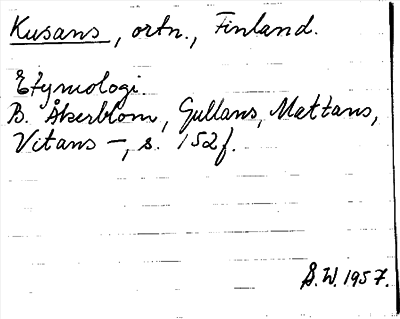 Kusans, ortn., Finland.
Etymologi.
B. Åkerblom, Gullans, Mattans,
Vitans –, s. 152f.
S.W. 1957.